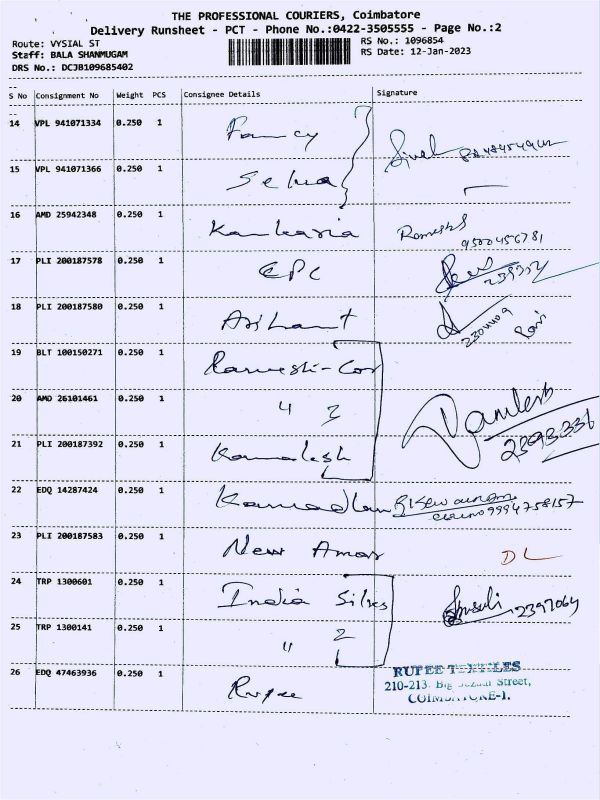 THE PROFESSIONAL COURIERS, Coimbatore
Delivery Runsheet - PCT - Phone No.:0422-3505555 - Page No.:2
Route: VYSIAL ST
RS No.: 1096854
Staff: BALA SHANMUGAM
RS Date: 12-Jan-2023
DRS No.: DCJB109685402
--
S No Consignment No Weight PCS Consignee Details Signature
--
14 VPL 941071334 0.250 1 Fancy
15 VPL 941071366 0.250 1 Selva
16 AMD 25942348 0.250 1 Kankaria Ramesh 9500456781
17 PLI 200187578 0.250 1 EPC
18 PLI 200187580 0.250 1 Arihant Ravi
19 BLT 100150271 0.250 1 Ramesh-Cor
20 AMD 26101461 0.250 1 " 3 Kamlesh 2393336
21 PLI 200187392 0.250 1 Kamalesh
22 EDQ 14287424 0.250 1 9994758157
23 PLI 200187583 0.250 1 New Amar DL
24 TRP 1300601 0.250 1 India Silks 2397064
25 TRP 1300141 0.250 1 " 2
26 EDQ 47463936 0.250 1 Rupee
RUPEE TEXTILES
210-213, Big Bazaar Street,
COIMBATORE-1.